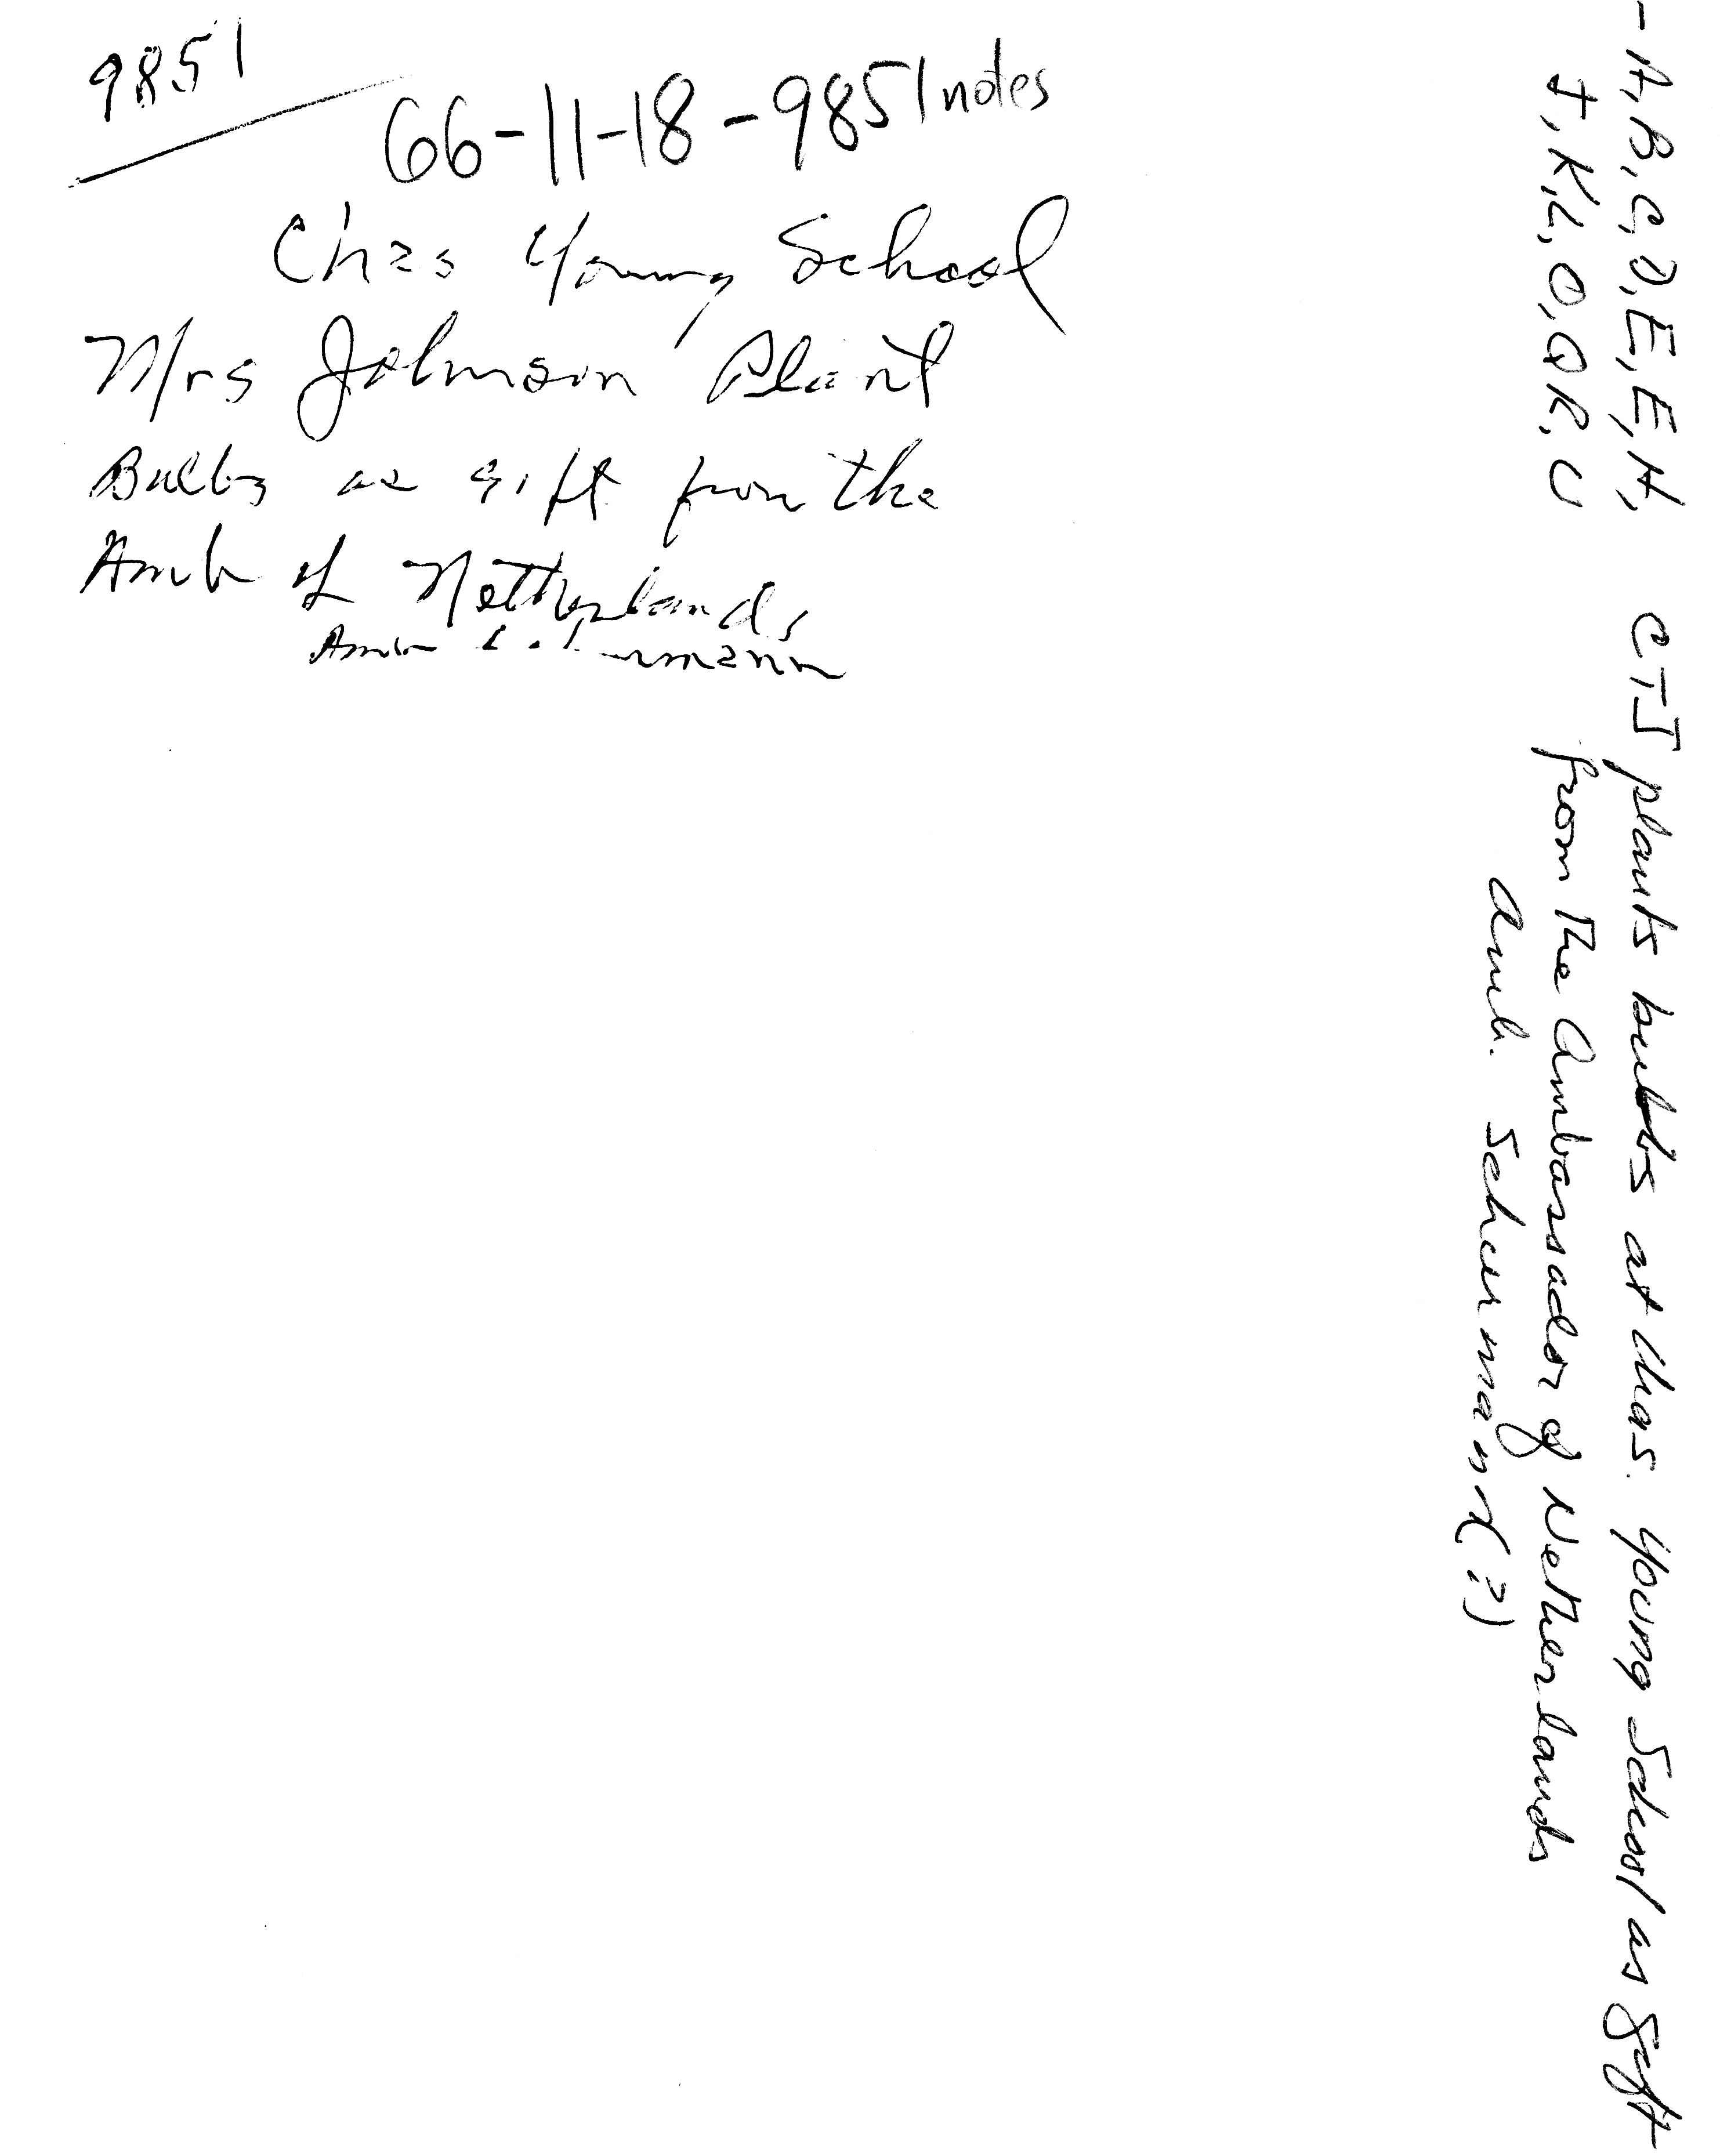 9851
66-11-18-9851 notes
Chas Young School
Mrs Johnson Plant
Bulbs as gift from the
Amb of Netherlands
Amb
- A, B, C, D, E, E, H,
J, K, L, O, Q R, U
CTJ plants bulbs at Chas. Young School as gift
from the Ambassador of Netherlands
Amb. Schurmann (?)